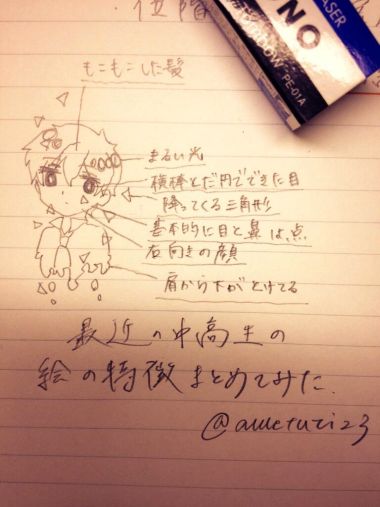 位階
ERASER
MONO
PE-01A
もこもこした髪
まるい光
横棒とだ円でできた目
降ってくる三角形
基本的に目と鼻は、点
右向きの顔
肩から下がとけてる
最近の中高生の
絵の特徴まとめてみた.
@ametuti23